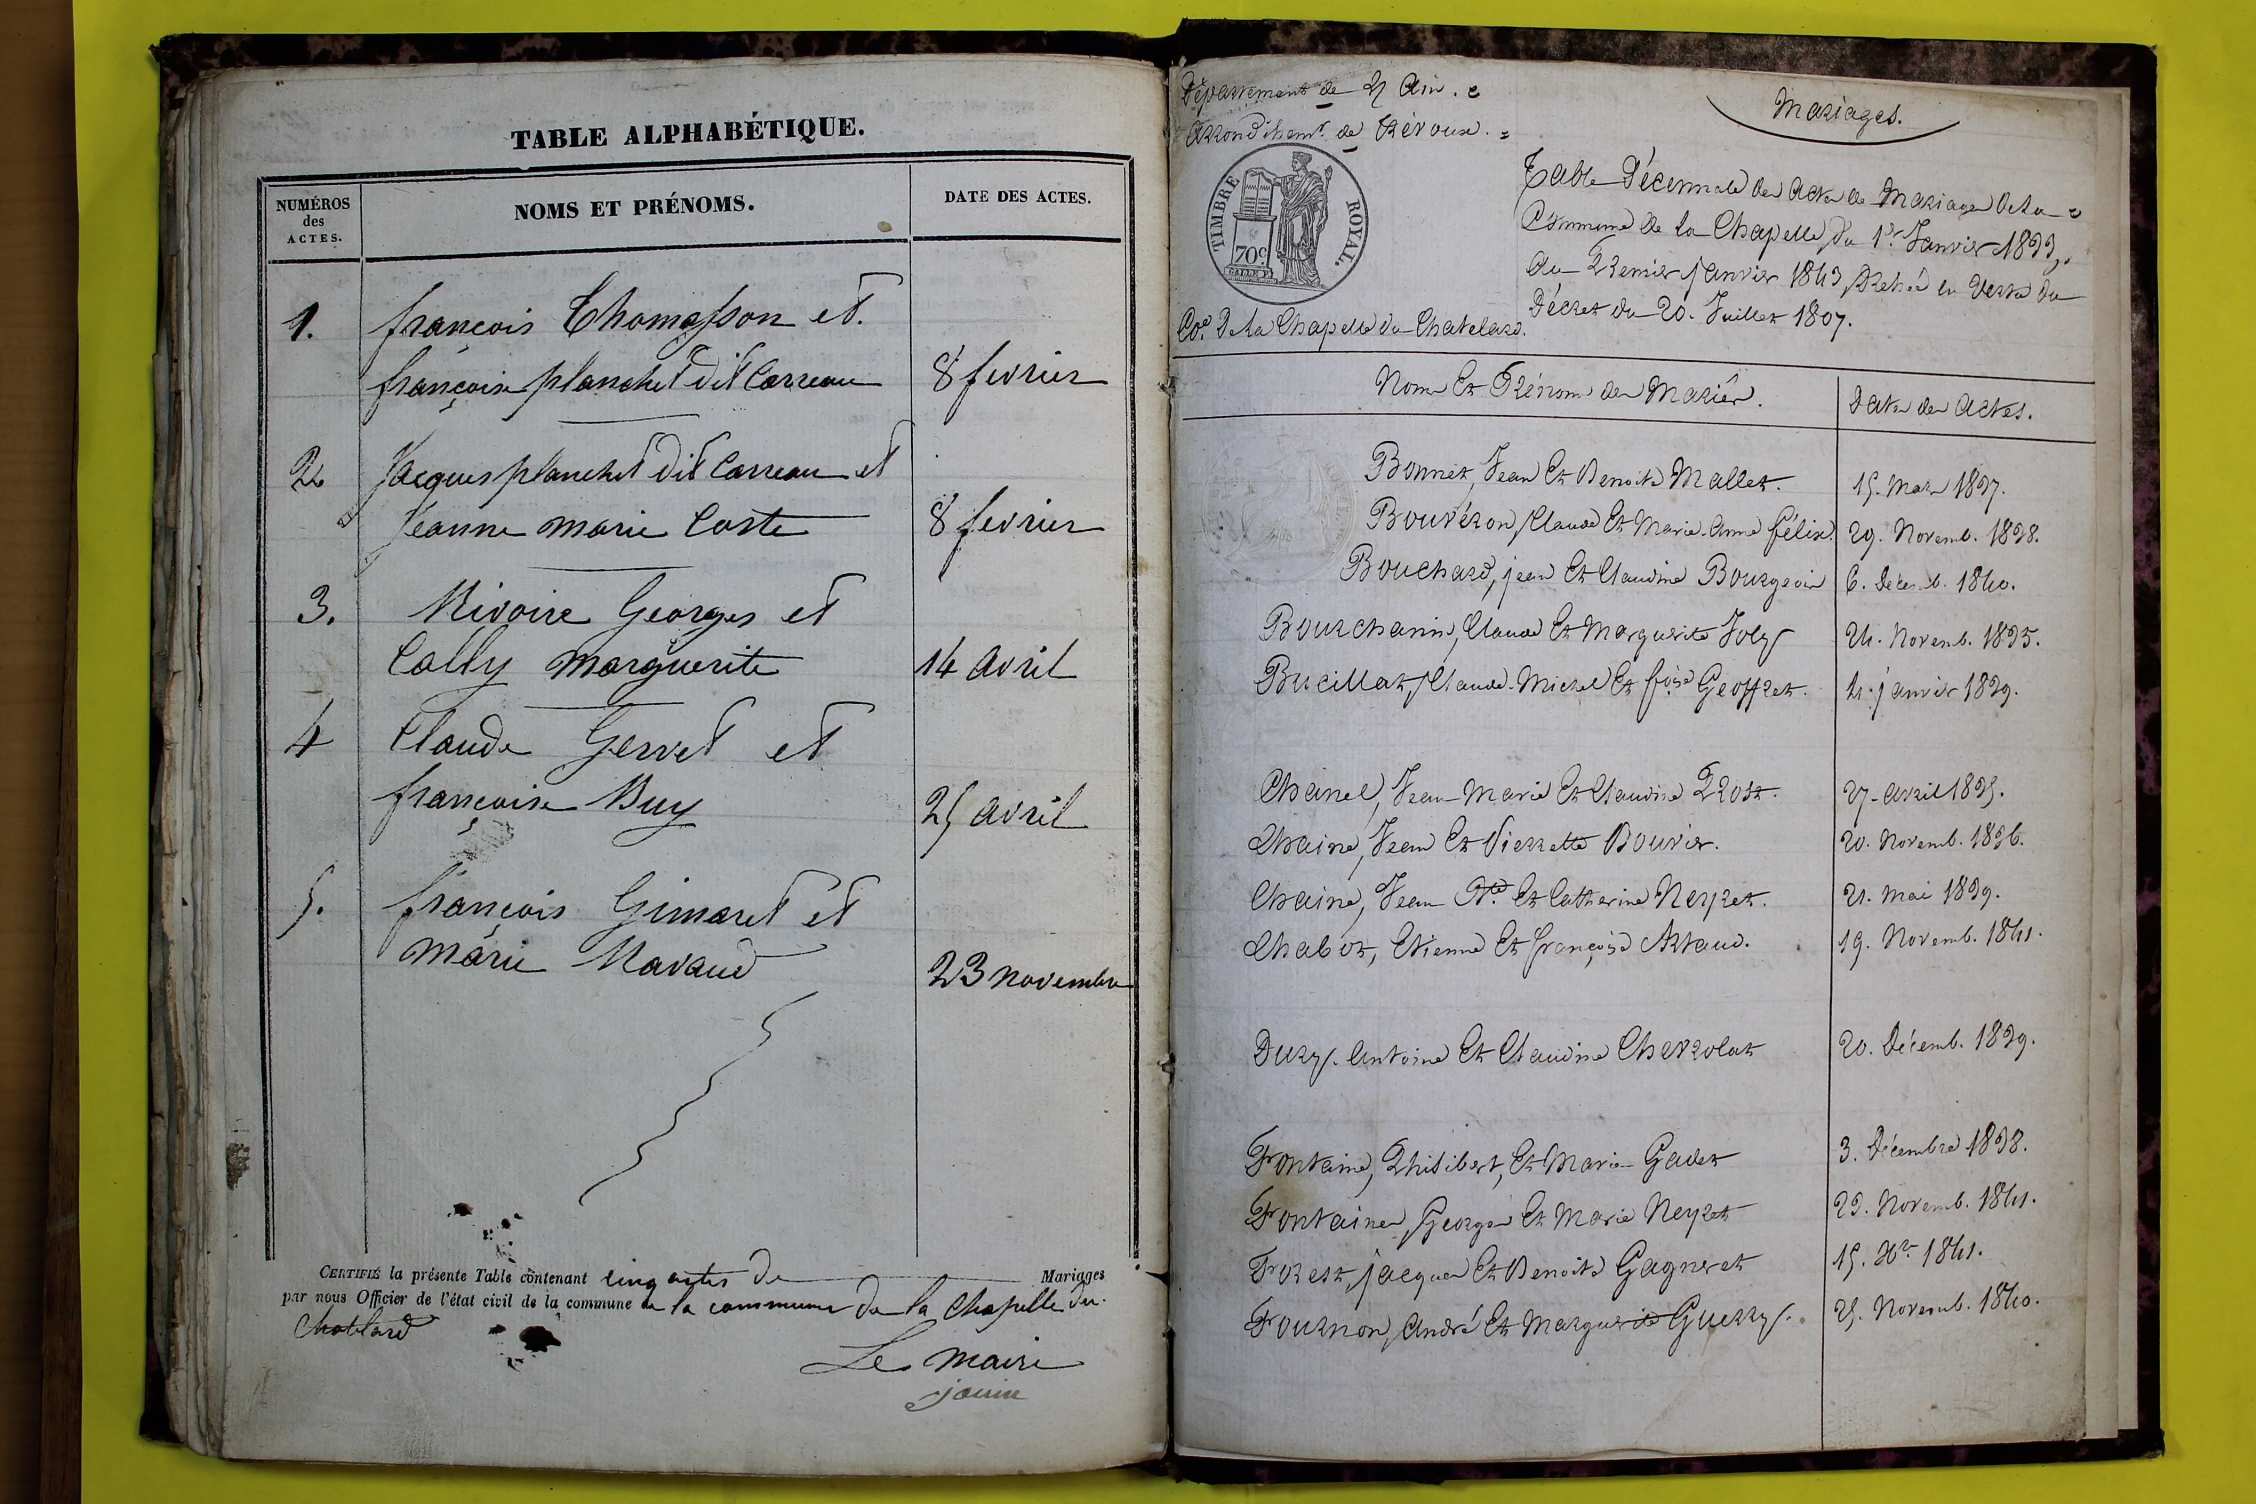 TABLE ALPHABÉTIQUE.
NUMÉROS
des
ACTES.
NOMS ET PRÉNOMS.
DATE DES ACTES.
1. françois Thomasson et
françoise planchet dit Carreau 8 fevrier
2 Jacques planchet dit Carreau et
Jeanne marie Coste 8 fevrier
3. Rivoire Georges et
Colly marguerite 14 avril
4 Claude Gervet et
françoise Buy 25 avril
5. françois Gimaret et
marie Ravaud 23 novembre
CERTIFIÉ la présente Table contenant cinq actes de Mariages
par nous Officier de l'état civil de la commune de la commune de la Chapelle du
Chatelard
Le maire
janin
Département de l'Ain.
Arrondissemt. de Trévoux.
TIMBRE ROYAL.
70 c.
Coe. De la Chapelle du Chatelard.
Mariages.
Table Décennale des Actes de Mariages de la
Commune de la Chapelle, du 1er. Janvier 1833,
au Premier janvier 1843, Dressée en Vertu du
Décret du 20. Juillet 1807.
Noms Et Prénoms des Mariés. Dates des Actes.
Bonnet, Jean Et Benoite Mallet. 15. Mars 1837.
Bouvéron, Claude Et Marie-Anne félix. 29. Novemb. 1838.
Bouchard, jean Et Claudine Bourgeois 6. Decemb. 1840.
Bourchanin, Claude Et Marguerite Joly 24. Novemb. 1835.
Bucillat, Claude-Michel Et foise Geoffret. 4. janvier 1839.
Chanel, Jean-Marie Et Claudine Prost. 27. avril 1835.
Chaine, Jean Et Pierrette Bouvier. 20. Novemb. 1836.
Chaine, Jean Bte. Et Catherine Neyret. 21. Mai 1839.
Chabot, Etienne Et françoise Artaud. 19. Novemb. 1841.
Dury. Antoine Et Claudine Cherrolat 20. Décemb. 1839.
Fontaine, Philibert, Et Marie Gadet 3. Décembre 1838.
Fontaine, Georges Et Marie Neyret 23. Novemb. 1841.
Forest, jacques Et Benoite Gagneret 15. Xbre. 1841.
Fournon, André Et Marguerite Guerry. 25. Novemb. 1840.